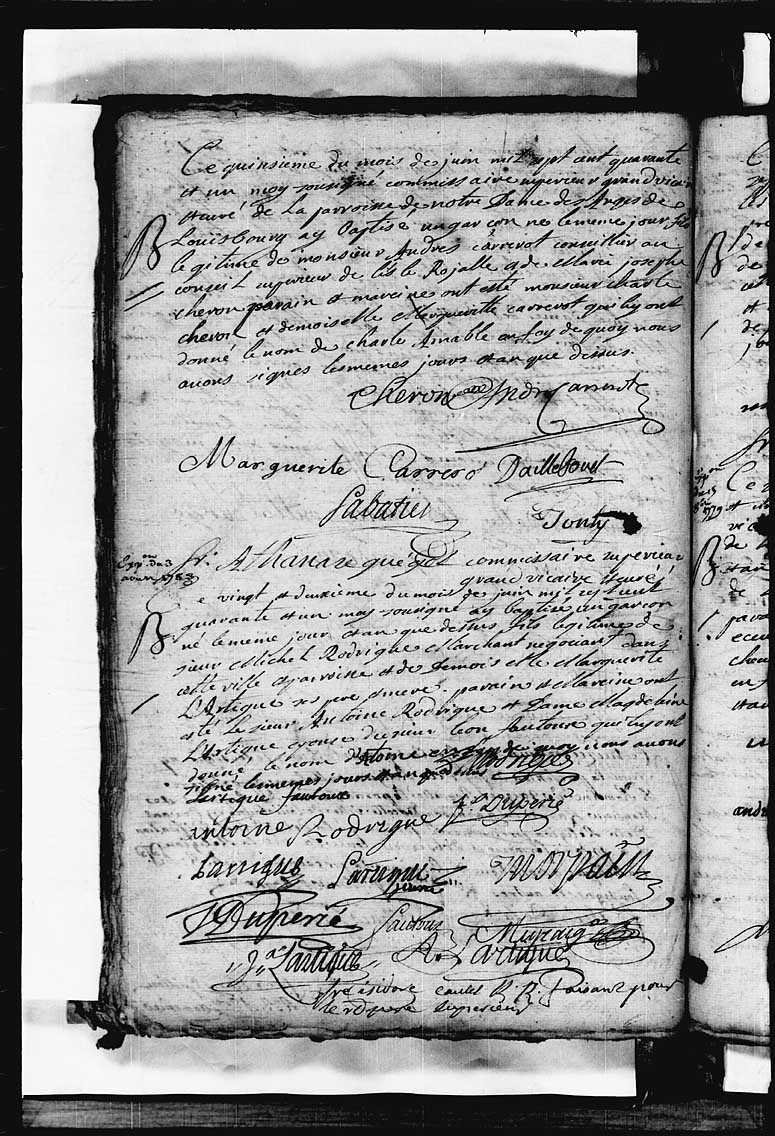 Ce quinsieme du mois de juin mil sept cent quarante
et un moy sousigné commissaire superieur grand vicaire
et curé de La parroisse de notre Dame des Anges de
Louisbourg ay Baptisé un garçon né le meme jour fils
legitime de monsieur Andres carrerot conseiller au
conseil superieur de l'isle Rojalle et de Marie josephe
cheron parain et mareine ont esté monsieur charle
cheron et demoiselle Margueritte carrerot qui luy ont
donné le nom de charle Amable en foy de quoy nous
avons signes les memes jours et an que dessus.
B
Cheron André Carrerot
Marguerite Carrerot Dailleboust
Sabatier
Tonty
fr. Athanase commissaire superieur
grand vicaire et curé
Expon du 3
B
Ce vingt et deuxieme du mois de juin mil sept cent
quarante et un moy sousigné ay baptisé un garcon
né le meme jour et an que dessus fils legitime de
sieur Michel Rodrigue Marchant negociant dans
cette ville et parroisse et de Demoiselle Marguerite
L'Artigue ses pere et mere. parain et Mareine ont
esté le sieur Antoine Rodrigue et Dame Magdeleine
L'Artigue epouse du sieur leon fautoux qui luy ont
donné le nom d'Antoine en foy de quoy nous avons
signé les memes jours et an que dessus
Lartigue fautoux Rodrigue
Antoine Rodrigue Duperié
Lartigue Lartigue Morpain
Duperié fautoux
Lartigue Lartigue
fre isidore caulet R. P. Faisant pour
le rd pere superieur